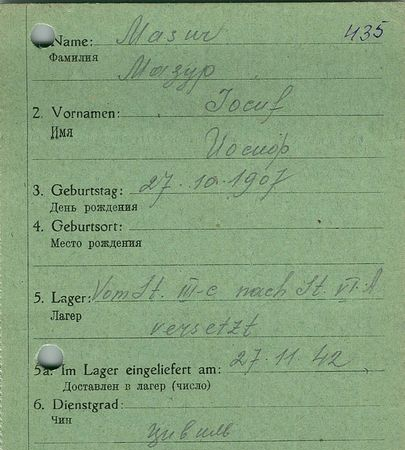 435
1. Name: Masur
Фамилия
Мазур
2. Vornamen: Iosif
Имя
Иосиф
3. Geburtstag: 27.10.1907
День рождения
4. Geburtsort:
Место рождения
5. Lager: Vom St. III-c nach St. VI.A
Лагер
versetzt
5a. Im Lager eingeliefert am: 27.11.42
Доставлен в лагер (число)
6. Dienstgrad:
Чин
цивиль